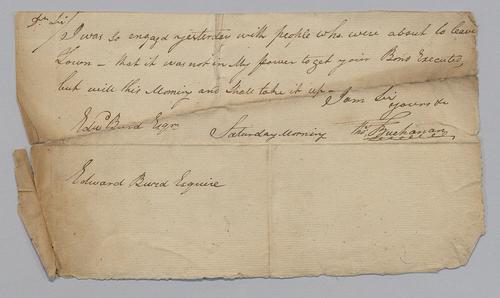 Dr Sir
I was so engag'd yesterday with people who were about to leave
Town – that it was not in My power to get your Bond Executed,
but will this Morning and Shall take it up –
I am Sir
Yours &c
Edwd Burd Esqr Saturday Morning Thos Buchanan
Edward Burd Esquire